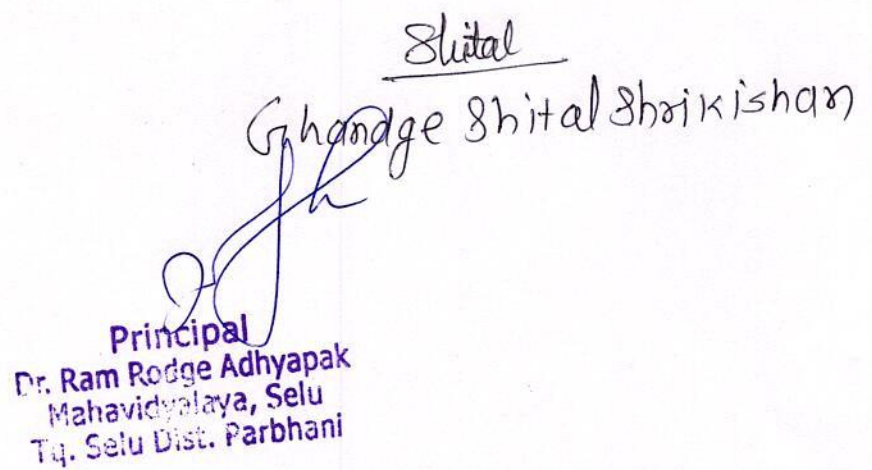 Shital
Ghandge Shital Shrikishan
Principal
Dr. Ram Rodge Adhyapak
Mahavidyalaya, Selu
Tq. Selu Dist. Parbhani